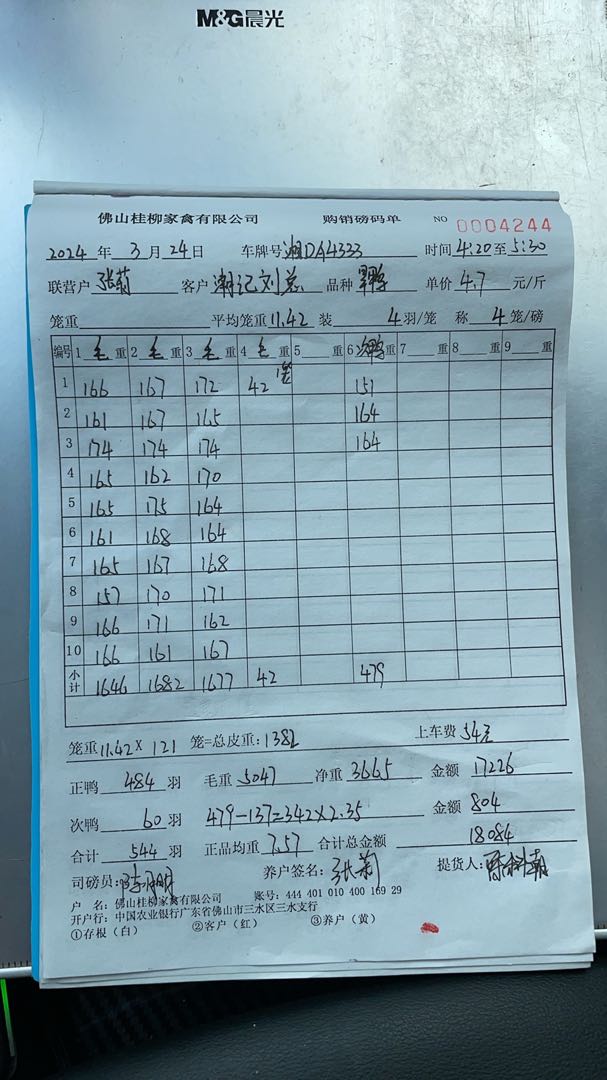 M&G晨光
佛山桂柳家禽有限公司 购销磅码单 NO 0004244
2024 年 3 月 24 日 车牌号 湘DA4333 时间 4:20 至 5:30
联营户 张菊 客户 湘记刘总 品种 单价 4.7 元/斤
笼重 平均笼重 11.42 装 4 羽/笼 称 4 笼/磅
编号 1 毛 重 2 毛 重 3 毛 重 4 毛 重 5 重 6 次鸭 重 7 重 8 重 9 重
1 166 167 172 42 1笼 151
2 161 167 165 164
3 174 174 174 164
4 165 162 170
5 165 175 164
6 161 168 164
7 165 167 168
8 157 170 171
9 166 171 162
10 166 161 167
小计 1646 1682 1677 42 479
笼重 11.42× 121 笼=总皮重: 1382 上车费 54元
正鸭 484 羽 毛重 5047 净重 3665 金额 17226
次鸭 60 羽 479-137=342×2.35 金额 804
合计 544 羽 正品均重 7.57 合计总金额 18084
司磅员: 养户签名: 张菊 提货人:
户 名: 佛山桂柳家禽有限公司 账号: 444 401 010 400 169 29
开户行: 中国农业银行广东省佛山市三水区三水支行
①存根(白) ②客户(红) ③养户(黄)